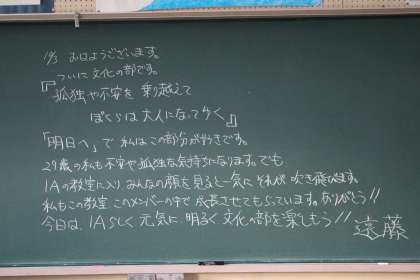 10/3 おはようございます。
ついに文化の部です。
『孤独や不安を 乗り越えて
ぼくらは 大人になってゆく』
「明日へ」で 私はこの部分が好きです。
29歳の私も不安や孤独な気持ちになります。でも
1Aの教室に入り みんなの顔を見ると一気にそれが吹き飛びます。
私もこの教室 このメンバーの中で 成長させてもらっています。ありがとう!!
今日は、1Aらしく 元気に 明るく 文化の部を楽しもう!!
遠藤